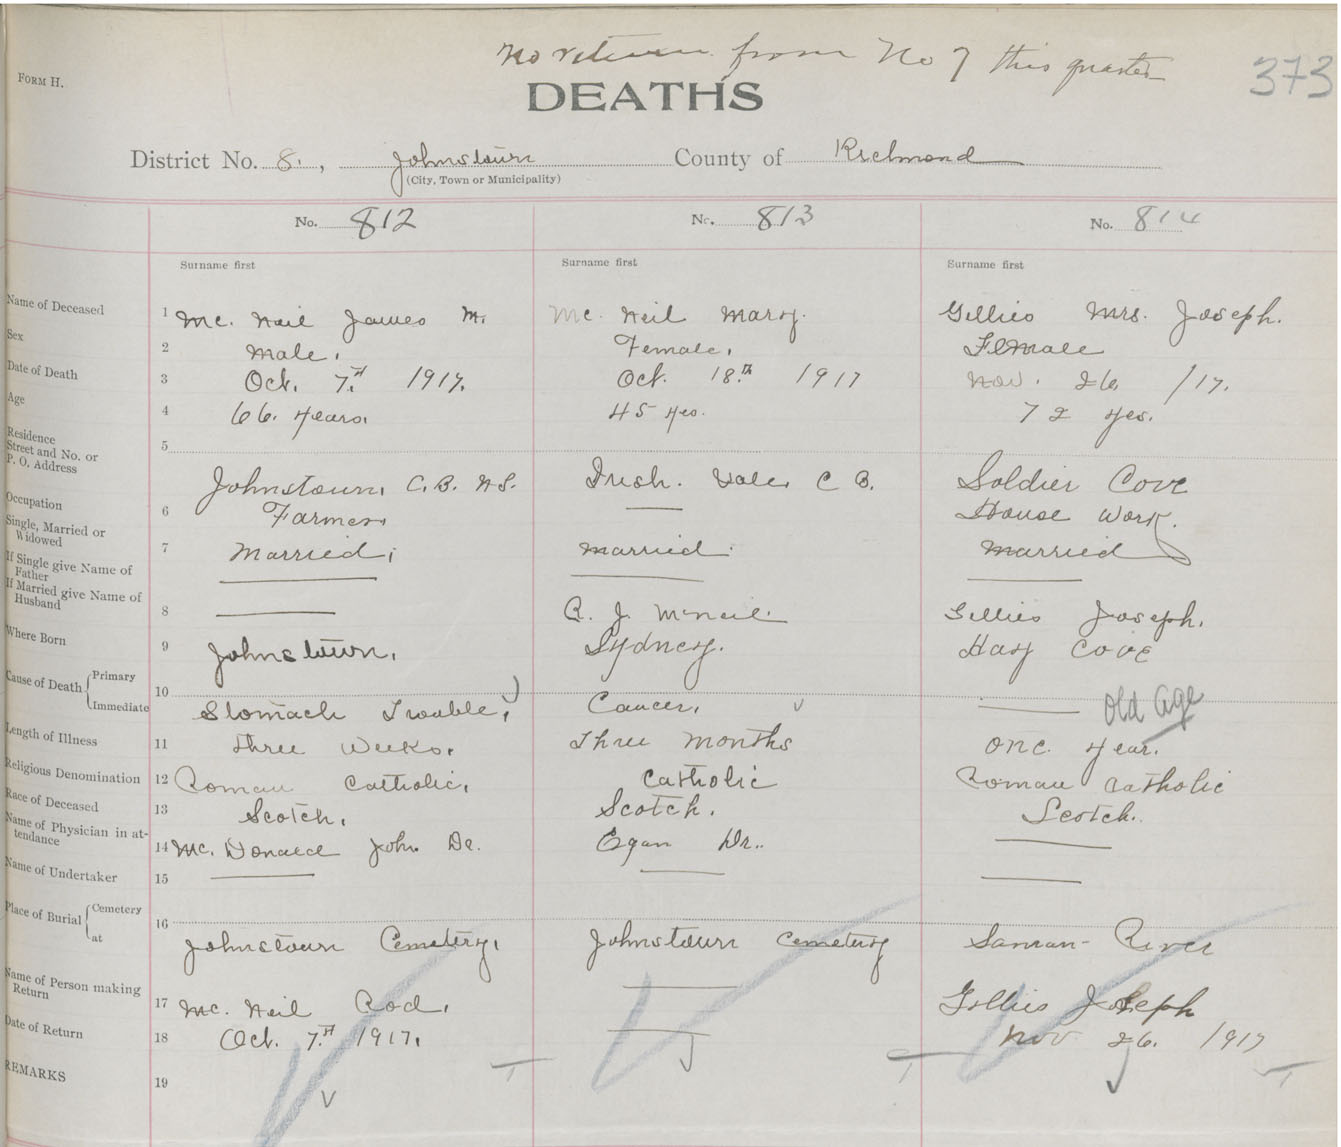 No return from No 7 this quarter
373
FORM H.
DEATHS
District No. 8. , Johnstown County of Richmond
(City, Town or Municipality)
No. 812 No. 813 No. 814
Surname first Surname first Surname first
Name of Deceased 1 Mc. Neil James M. Mc. Neil Mary. Gillies Mrs. Joseph.
Sex 2 Male. Female. Female
Date of Death 3 Oct. 7.th 1917. Oct. 18.th 1917 Nov. 26 /17.
Age 4 66. years. 45 yrs. 72 yrs.
Residence
Street and No. or
P. O. Address 5 Johnstown, C.B. N.S. Irish. Vale, C B. Soldier Cove
Occupation 6 Farmer, House Work.
Single, Married or
Widowed 7 Married, Married. Married
If Single give Name of
Father
If Married give Name of
Husband 8 R. J. McNeil Gillies Joseph.
Where Born 9 Johnstown. Sydney. Hay Cove
Cause of Death { Primary 10
Immediate Stomach Trouble, Cancer, Old Age
Length of Illness 11 Three Weeks. Three Months one year.
Religious Denomination 12 Roman Catholic. Catholic Roman Catholic
Race of Deceased 13 Scotch. Scotch. Scotch.
Name of Physician in at-
tendance 14 Mc. Donald John Dr. Egan Dr..
Name of Undertaker 15
Place of Burial { Cemetery 16
at Johnstown Cemetery, Johnstown Cemetery River
Name of Person making
Return 17 Mc. Neil Rod. Gillies Joseph
Date of Return 18 Oct. 7.th 1917. Nov 26. 1917
REMARKS 19